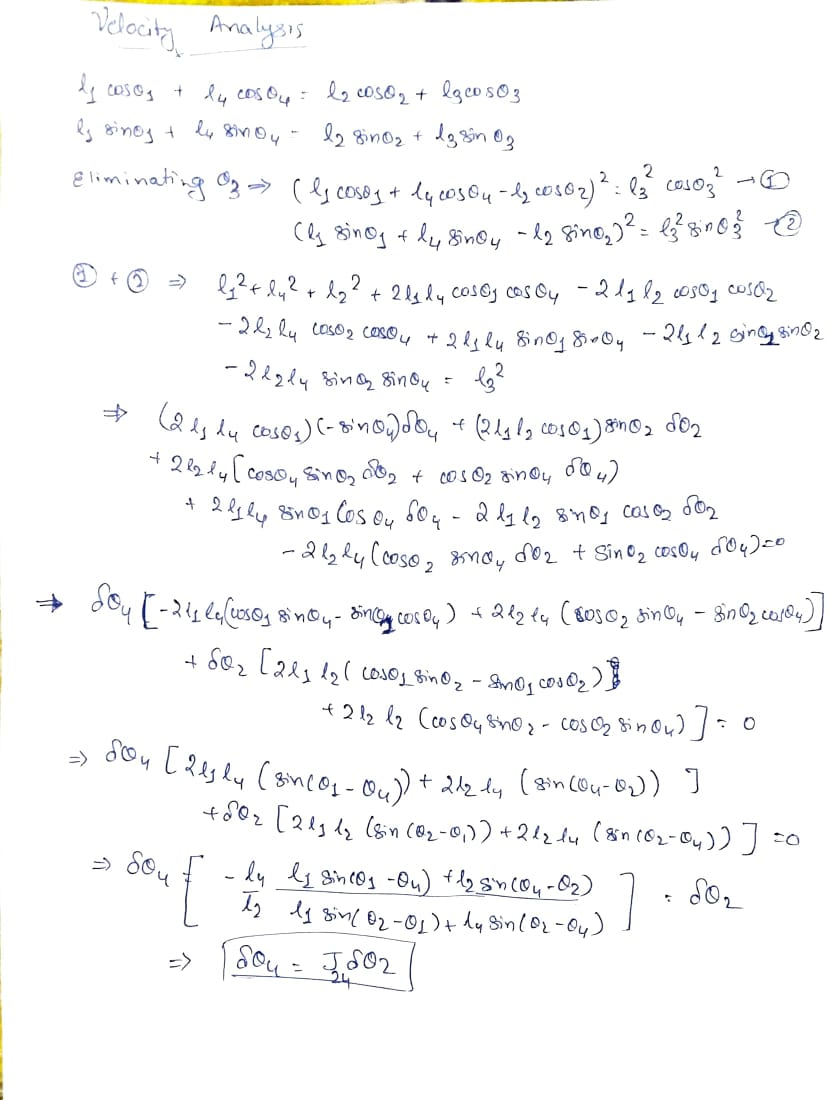 Velocity Analysis
l₁ cosθ₁ + l₄ cosθ₄ = l₂ cosθ₂ + l₃ cosθ₃
l₁ sinθ₁ + l₄ sinθ₄ = l₂ sinθ₂ + l₃ sinθ₃
Eliminating θ₃ ⇒ (l₁ cosθ₁ + l₄ cosθ₄ - l₂ cosθ₂)² = l₃² cosθ₃² → ①
(l₁ sinθ₁ + l₄ sinθ₄ - l₂ sinθ₂)² = l₃² sinθ₃² → ②
① + ② ⇒ l₁² + l₄² + l₂² + 2l₁l₄ cosθ₁ cosθ₄ - 2l₁l₂ cosθ₁ cosθ₂
- 2l₂l₄ cosθ₂ cosθ₄ + 2l₁l₄ sinθ₁ sinθ₄ - 2l₁l₂ sinθ₁ sinθ₂
- 2l₂l₄ sinθ₂ sinθ₄ = l₃²
⇒ (2l₁l₄ cosθ₁)(-sinθ₄)δθ₄ + (2l₁l₂ cosθ₁) sinθ₂ δθ₂
+ 2l₂l₄ [cosθ₄ sinθ₂ δθ₂ + cosθ₂ sinθ₄ δθ₄)
+ 2l₁l₄ sinθ₁ Cosθ₄ δθ₄ - 2l₁l₂ sinθ₁ cosθ₂ δθ₂
- 2l₂l₄ (cosθ₂ sinθ₄ δθ₂ + sinθ₂ cosθ₄ δθ₄) = 0
⇒ δθ₄ [-2l₁l₄(cosθ₁ sinθ₄ - sinθ₁ cosθ₄) + 2l₂l₄ (cosθ₂ sinθ₄ - sinθ₂ cosθ₄)]
+ δθ₂ [2l₁l₂ (cosθ₁ sinθ₂ - sinθ₁ cosθ₂)
+ 2l₂l₂ (cosθ₄ sinθ₂ - cosθ₂ sinθ₄)] = 0
⇒ δθ₄ [2l₁l₄ (sin(θ₁-θ₄)) + 2l₂l₄ (sin(θ₄-θ₂)) ]
+ δθ₂ [2l₁l₂ (sin(θ₂-θ₁)) + 2l₂l₄ (sin(θ₂-θ₄))] = 0
⇒ δθ₄ [ -l₄/l₂ (l₁ sin(θ₁-θ₄) + l₂ sin(θ₄-θ₂))/(l₁ sin(θ₂-θ₁) + l₄ sin(θ₂-θ₄)) ] = δθ₂
⇒ δθ₄ = J₂₄ δθ₂